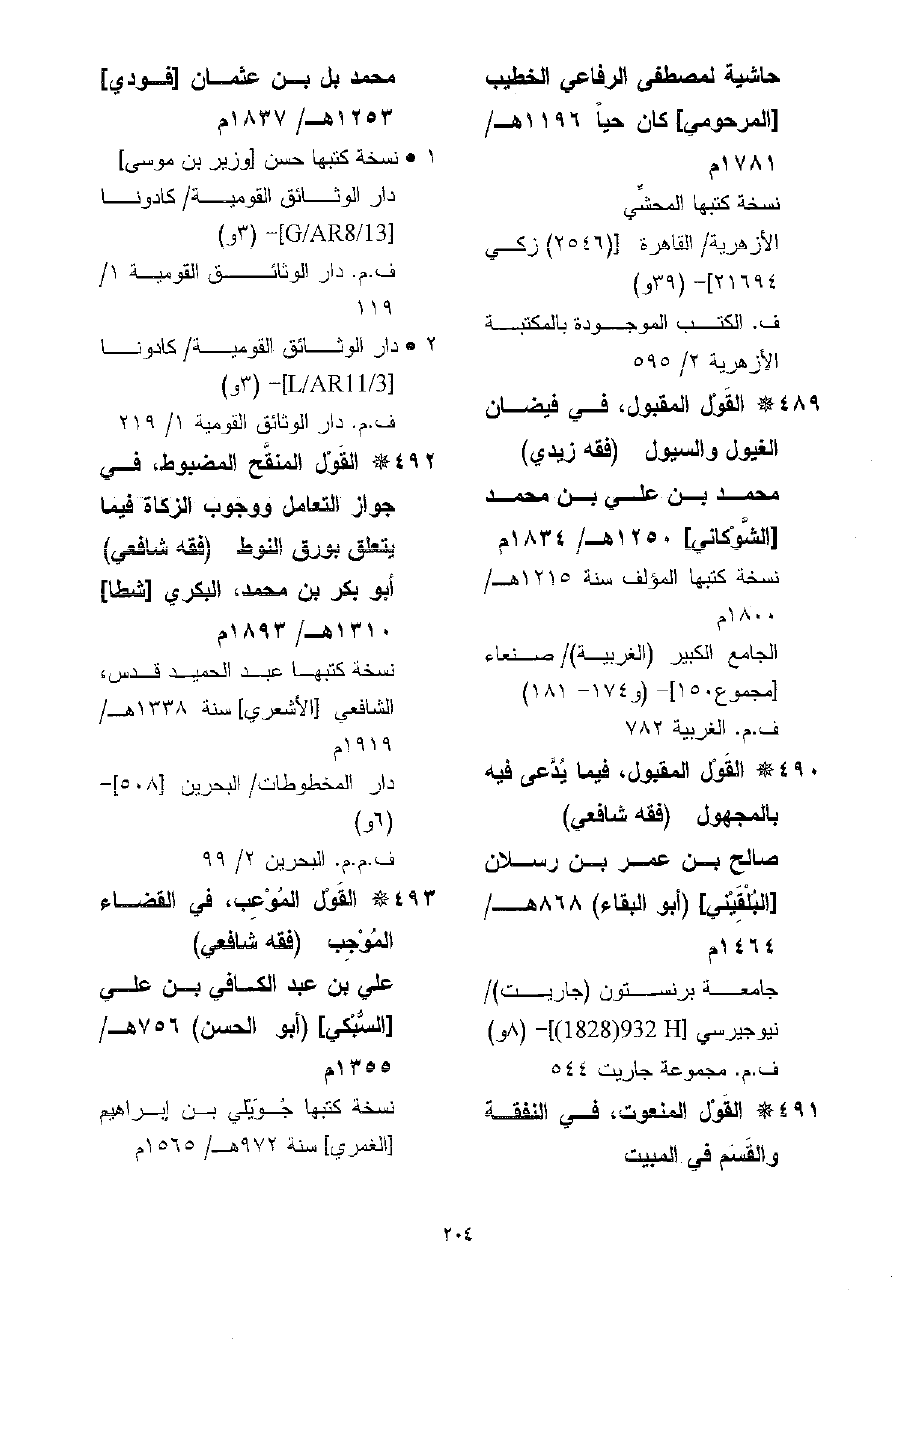 حاشية لمصطفى الرفاعي الخطيب
[المرحومي] كان حياً ١١٩٦هـ/
١٧٨١م
نسخة كتبها المحشّي
الأزهرية/ القاهرة [(٢٥٤٦) زكي
٢١٦٩٤]– (٣٩و)
ف. الكتب الموجودة بالمكتبة
الأزهرية ٢/ ٥٩٥
٤٨٩❊ القَول المقبول، في فيضان
الغيول والسيول (فقه زيدي)
محمد بن علي بن محمد
[الشَّوْكاني] ١٢٥٠هـ/ ١٨٣٤م
نسخة كتبها المؤلف سنة ١٢١٥هـ/
١٨٠٠م
الجامع الكبير (الغربية)/ صنعاء
[مجموع١٥٠]– (و١٧٤– ١٨١)
ف.م. الغربية ٧٨٢
٤٩٠❊ القَول المقبول، فيما يُدَّعى فيه
بالمجهول (فقه شافعي)
صالح بن عمر بن رسلان
[البُلْقَيْني] (أبو البقاء) ٨٦٨هـ/
١٤٦٤م
جامعة برنستون (جاريت)/
نيوجيرسي [932 H(1828)]– (٨و)
ف.م. مجموعة جاريت ٥٤٤
٤٩١❊ القَول المنعوت، في النفقة
والقَسَم في المبيت
محمد بل بن عثمان [فودي]
١٢٥٣هـ/ ١٨٣٧م
١ • نسخة كتبها حسن [وزير بن موسى]
دار الوثائق القومية/ كادونا
[G/AR8/13]– (٣و)
ف.م. دار الوثائق القومية ١/
١١٩
٢ • دار الوثائق القومية/ كادونا
[L/AR11/3]– (٣و)
ف.م. دار الوثائق القومية ١/ ٢١٩
٤٩٢❊ القَول المنقَّح المضبوط، في
جواز التعامل ووجوب الزكاة فيما
يتعلق بورق النوط (فقه شافعي)
أبو بكر بن محمد، البكري [شطا]
١٣١٠هـ/ ١٨٩٣م
نسخة كتبها عبد الحميد قدس،
الشافعي [الأشعري] سنة ١٣٣٨هـ/
١٩١٩م
دار المخطوطات/ البحرين [٥٠٨]–
(٦و)
ف.م.م. البحرين ٢/ ٩٩
٤٩٣❊ القَول المُوْعِب، في القضاء
المُوْجِب (فقه شافعي)
علي بن عبد الكافي بن علي
[السُّبْكي] (أبو الحسن) ٧٥٦هـ/
١٣٥٥م
نسخة كتبها جُوَيْلي بن إبراهيم
[الغمري] سنة ٩٧٢هـ/ ١٥٦٥م
٢٠٤